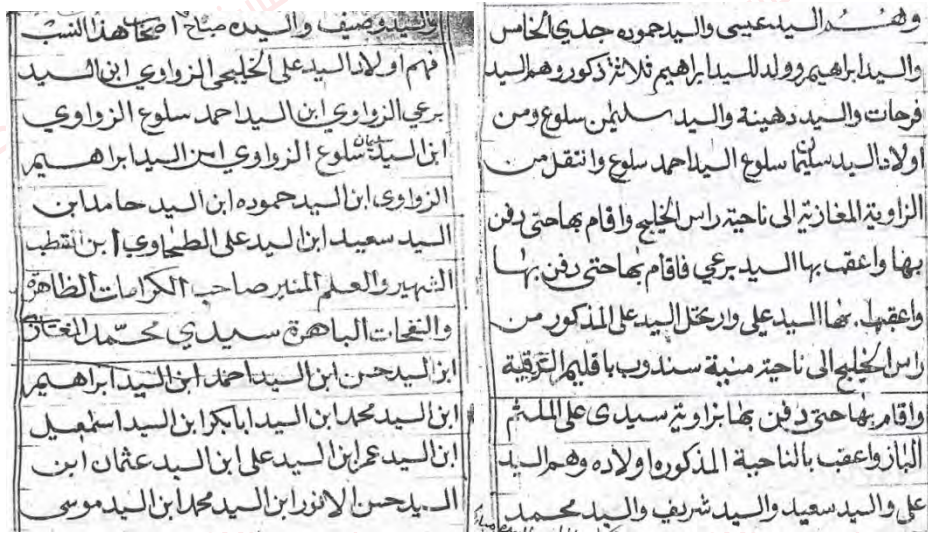 وهم السيد عيسى والسيد حموده جدي الخامس
والسيد ابراهيم وولد للسيد ابراهيم ثلاثة ذكور وهم السيد
فرحات والسيد دهينة والسيد سليمن سلوع ومن
اولاد السيد سليمان سلوع السيد احمد سلوع وانتقل من
الزاوية المغازية الى ناحية راس الخليج واقام بها حتى دفن
بها واعقب بها السيد برعي فاقام بها حتى دفن بها
واعقب بها السيد على وارتحل السيد على المذكور من
راس الخليج الى ناحية منية سندوب باقليم الشرقية
واقام بها حتى دفن بها بزاوية سيدى على الملثم
الباز واعقب بالناحية المذكوره اولاده وهم السيد
على والسيد سعيد والسيد شريف والسيد محمد
والسيد وصيف والسيده صباح اصحاب هذا النسب
فهم اولاد السيد على الخليجى الزواوي ابن السيد
برعي الزواوي ابن السيد احمد سلوع الزواوي
ابن السيد سليمان سلوع الزواوي ابن السيد ابراهيم
الزواوى ابن السيد حموده ابن السيد حامد ابن
السيد سعيد ابن السيد على الطحاوي ابن القطب
الشهير والعلم المنير صاحب الكرامات الظاهرة
والنفحات الباهرة سيدي محمد المغازى
ابن السيد حسن ابن السيد احمد ابن السيد ابراهيم
ابن السيد محمد ابن السيد ابابكر ابن السيد اسمعيل
ابن السيد عمر ابن السيد على ابن السيد عثمان ابن
السيد حسن الانور ابن السيد محمد ابن السيد موسى